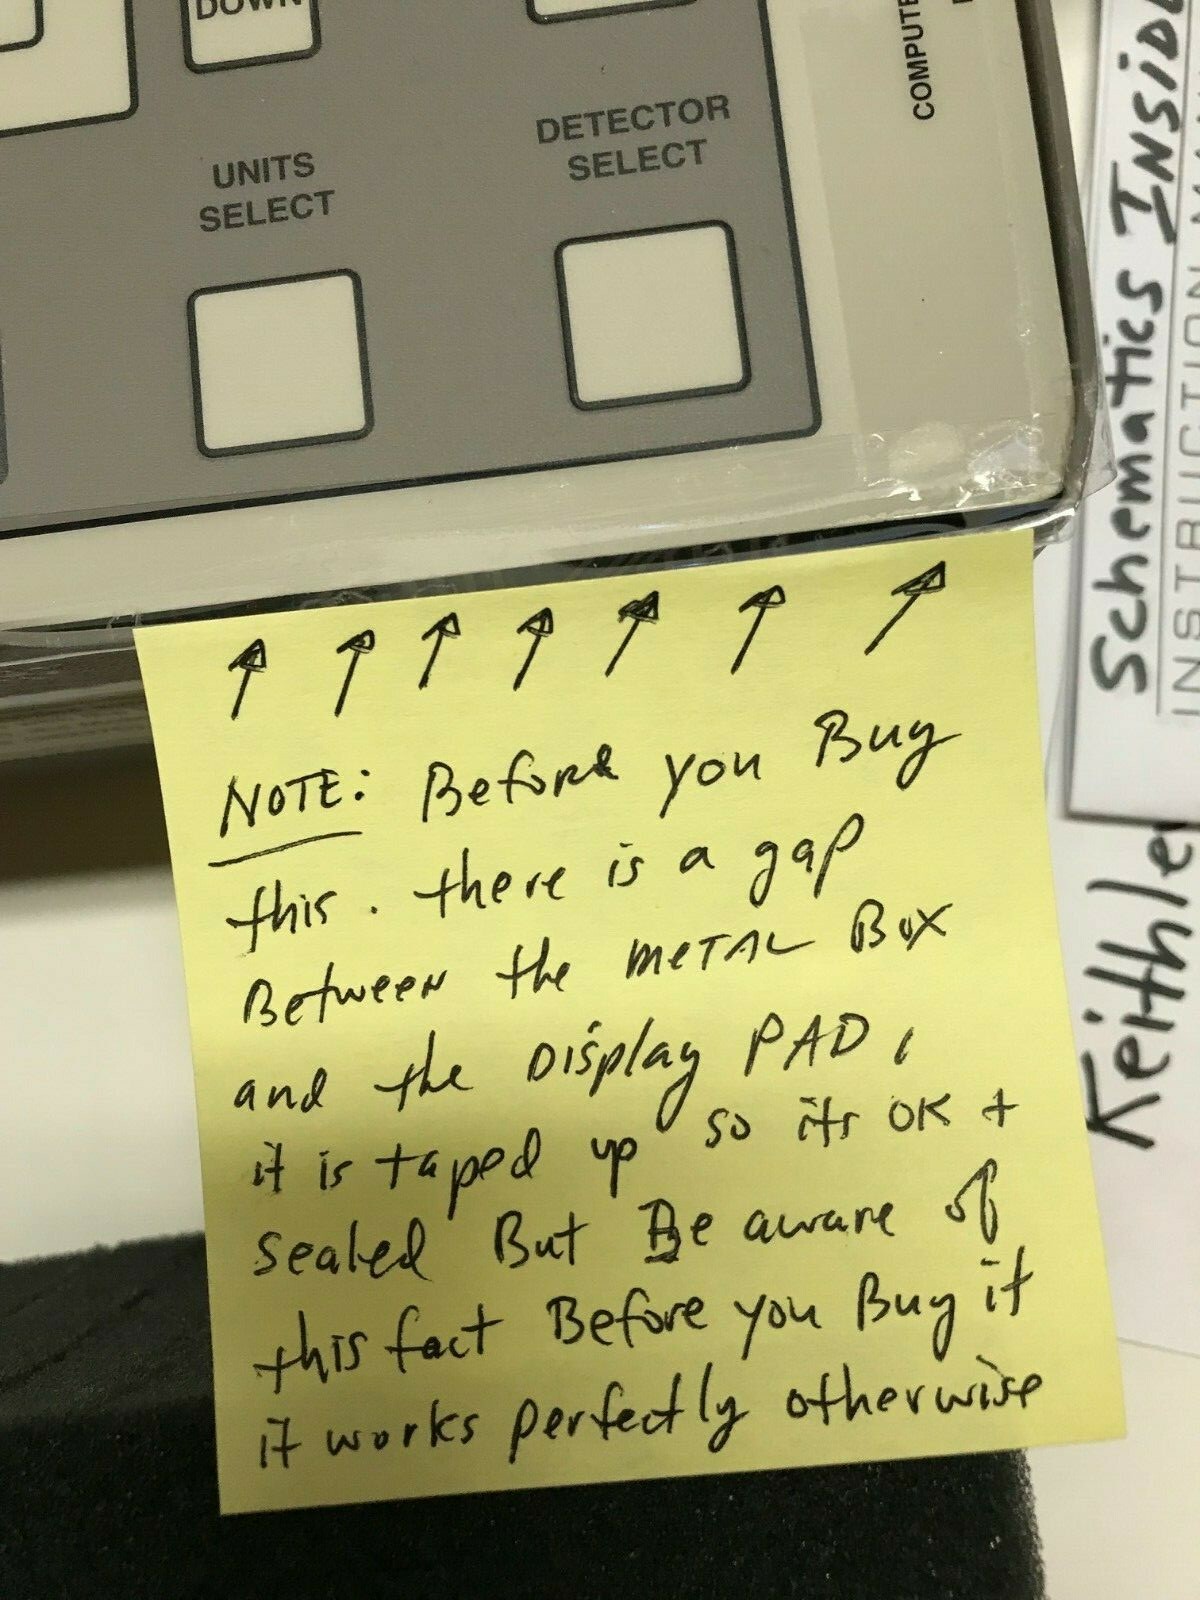 DOWN
UNITS
SELECT
DETECTOR
SELECT
NOTE: Before you Buy
this. there is a gap
Between the METAL Box
and the Display PAD,
it is taped up so its OK +
sealed But Be aware of
this fact Before you Buy it
it works perfectly otherwise
Schematics
Keithle